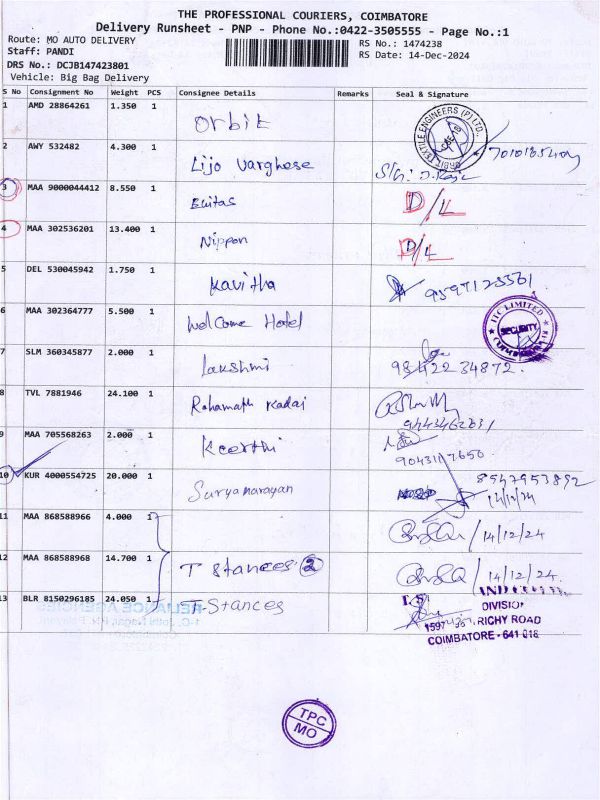 THE PROFESSIONAL COURIERS, COIMBATORE
Delivery Runsheet - PNP - Phone No.:0422-3505555 - Page No.:1
Route: MO AUTO DELIVERY
RS No.: 1474238
Staff: PANDI
RS Date: 14-Dec-2024
DRS No.: DCJB147423801
Vehicle: Big Bag Delivery
S No Consignment No Weight PCS Consignee Details Remarks Seal & Signature
1 AMD 28864261 1.350 1 Orbit
2 AWY 532482 4.300 1 Lijo Varghese
3 MAA 9000044412 8.550 1 D/L
4 MAA 302536201 13.400 1 Nippon D/L
5 DEL 530045942 1.750 1 Kavitha
6 MAA 302364777 5.500 1 Welcome Hotel
ITC LIMITED
SECURITY
7 SLM 360345877 2.000 1 Lakshmi 98422 34872.
8 TVL 7881946 24.100 1 Rahamath Kadai
9443462631
9 MAA 705568263 2.000 1 Keerthi
9043117650
10 KUR 4000554725 20.000 1 Suryanarayan 8547953892
14/12/24
11 MAA 868588966 4.000 1 /14/12/24
12 MAA 868588968 14.700 1 T Stances 2 /14/12/24.
13 BLR 8150296185 24.050 1 T-Stances
DIVISION
RICHY ROAD
COIMBATORE - 641 018
TPC
MO